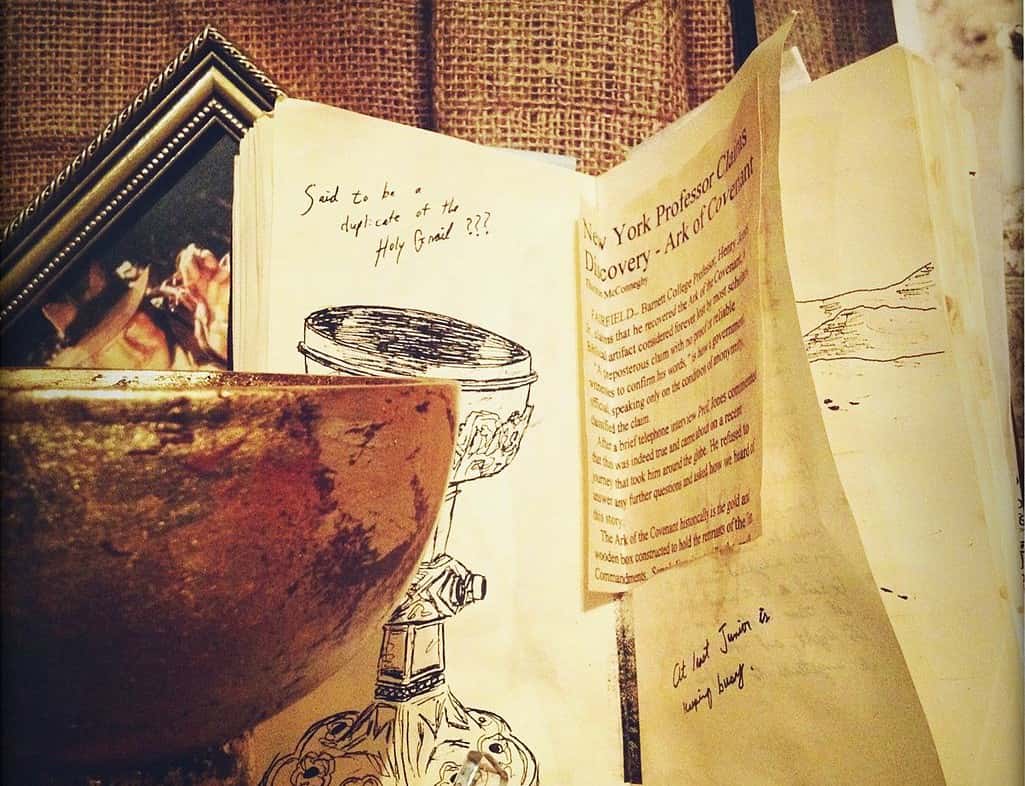 Said to be a
duplicate of the
Holy Grail ???
New York Professor Claims
Discovery - Ark of Covenant
McConneghy
FAIRFIELD-- Barnett College Professor, Henry
claims that he recovered the Ark of the Covenant, a
artifact considered forever lost by most scholars.
"A preposterous claim with no proof or reliable
witnesses to confirm his words," is how a government
official, speaking only on the condition of anonymity,
classified the claim.
After a brief telephone interview Prof. Jones commented
that this was indeed true and came about on a recent
journey that took him around the globe. He refused to
answer any further questions and asked how we heard of
this story.
The Ark of the Covenant historically is the gold and
wooden box constructed to hold the remnants of the
Commandments.
At least Junior is
keeping busy.